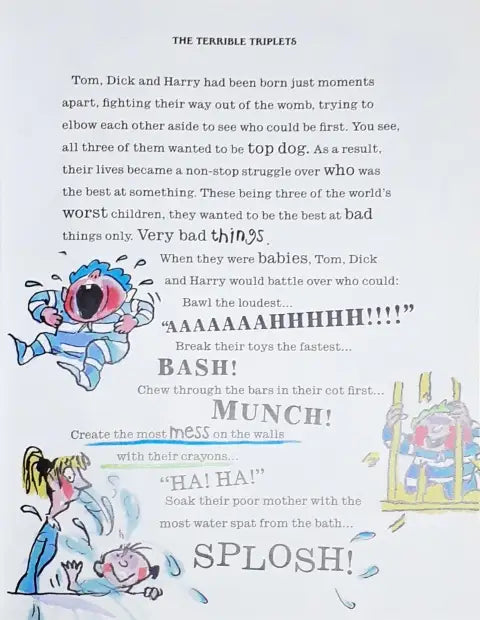 THE TERRIBLE TRIPLETS
Tom, Dick and Harry had been born just moments
apart, fighting their way out of the womb, trying to
elbow each other aside to see who could be first. You see,
all three of them wanted to be top dog. As a result,
their lives became a non-stop struggle over who was
the best at something. These being three of the world's
worst children, they wanted to be the best at bad
things only. Very bad things.
When they were babies, Tom, Dick
and Harry would battle over who could:
Bawl the loudest...
"AAAAAAAHHHHH!!!!"
Break their toys the fastest...
BASH!
Chew through the bars in their cot first...
MUNCH!
Create the most mess on the walls
with their crayons...
"HA! HA!"
Soak their poor mother with the
most water spat from the bath...
SPLOSH!